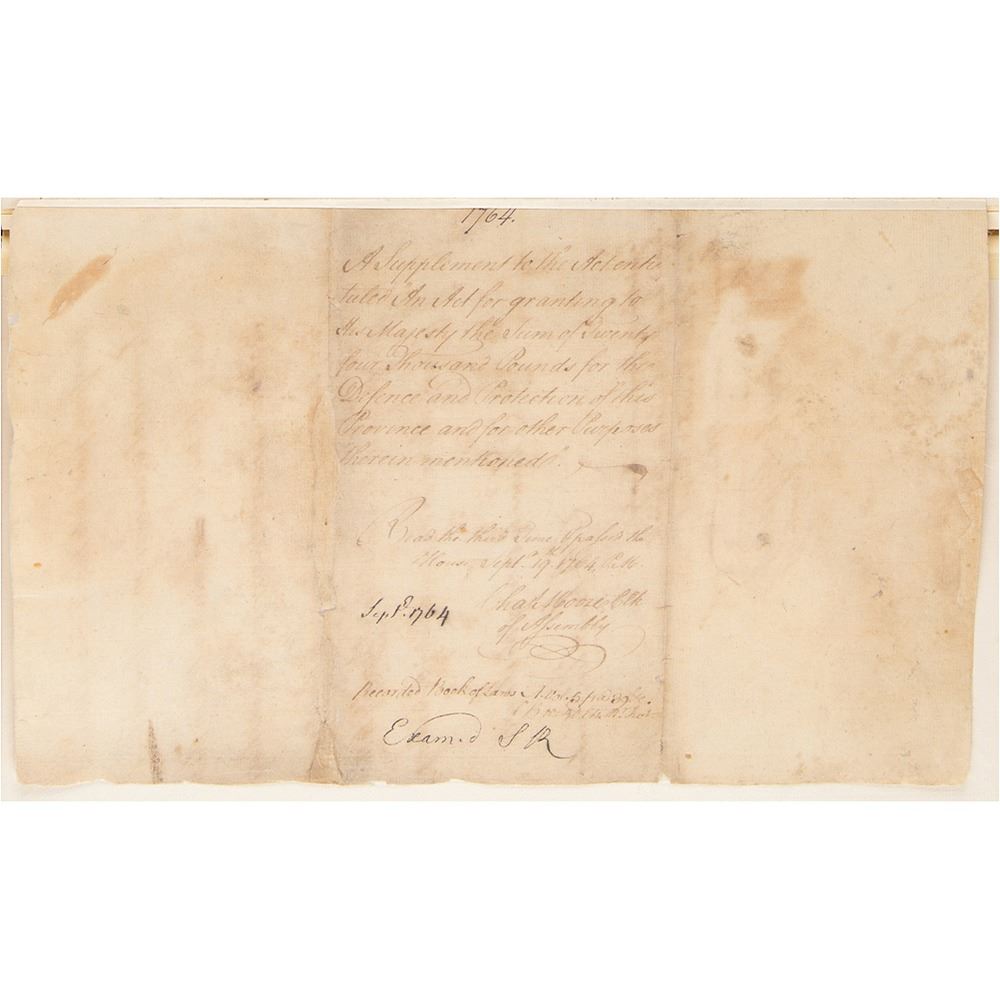 1764.
A Supplement to the Act enti-
tuled An Act for granting to
His Majesty the Sum of Twenty
four Thousand Pounds for the
Defence and Protection of this
Province and for other Purposes
therein mentioned".
Read the third Time & passed the
House, Sept.r 19th 1764.
Cha.s Moore, Clk
of Assembly
Sept.r 1764
Recorded Book of Laws
Exam.d S R